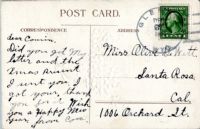 POST CARD.
CORRESPONDENCE
dear Cousin.
Did you get my
letter and the
Xmas Present
I sent you I
got your, thank
you for it Wish
you a Happy New
Year from Cora
Miss Alice
Santa Rosa
Cal.
1006 Orchard St.